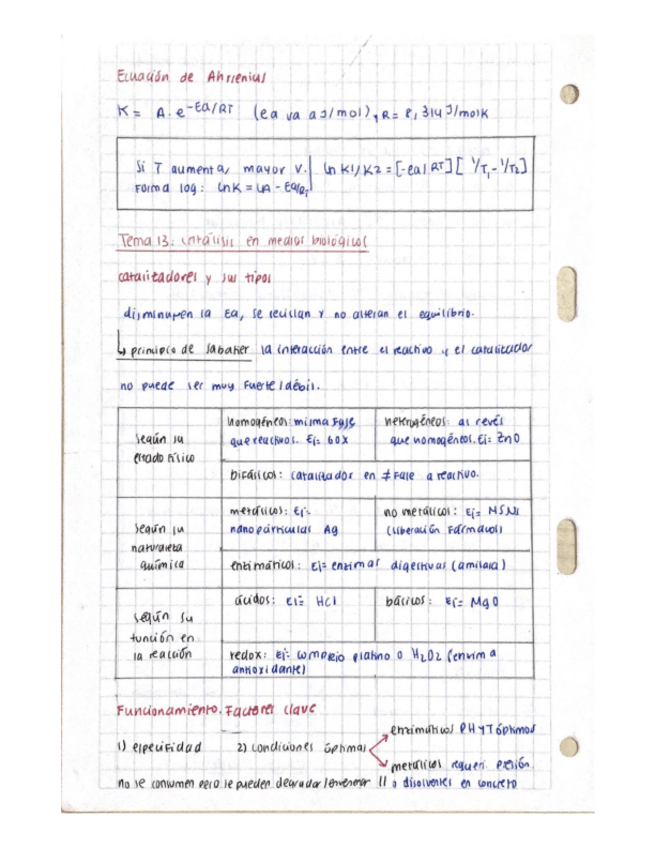 Ecuación de Ahrrenius
K = A · e^-Ea/RT (ea va a J/mol), R = 8,314 J/molK
Si T aumenta, mayor v. ln K1/K2 = [-ea/RT] [1/T1 - 1/T2]
Forma log: lnK = LA - Ea/RT
Tema 13: catálisis en medios biológicos
catalizadores y sus tipos
disminuyen la Ea, se reciclan y no alteran el equilibrio.
principio de Sabatier la interacción entre el reactivo y el catalizador
no puede ser muy fuerte/débil.
según su estado físico
homogéneos: misma fase que reactivos. Ej: GOX
heterogéneos: al revés que homogéneos. Ej: ZnO
bifásicos: catalizador en ≠ fase a reactivo.
según su naturaleza química
metálicos: Ej: nanopartículas Ag
no metálicos: Ej: MSNs (liberación fármacos)
enzimáticos: Ej: enzimas digestivas (amilasa)
según su función en la reacción
ácidos: Ej: HCl
básicos: Ej: MgO
redox: Ej: complejo platino o H2O2 (enzima antioxidante)
Funcionamiento. Factores clave
1) especifidad 2) condiciones óptimas
enzimáticos PH y T óptimos
metálicos requeri. presión.
no se consumen pero se pueden degradar/envenenar // o disolventes en concreto